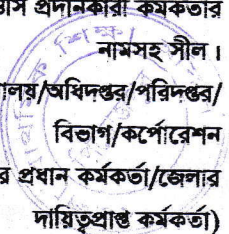 প্রদানকারী কর্মকর্তার
নামসহ সীল।
/অধিদপ্তর/পরিদপ্তর/
বিভাগ/কর্পোরেশন
প্রধান কর্মকর্তা/জেলার
দায়িত্বপ্রাপ্ত কর্মকর্তা)